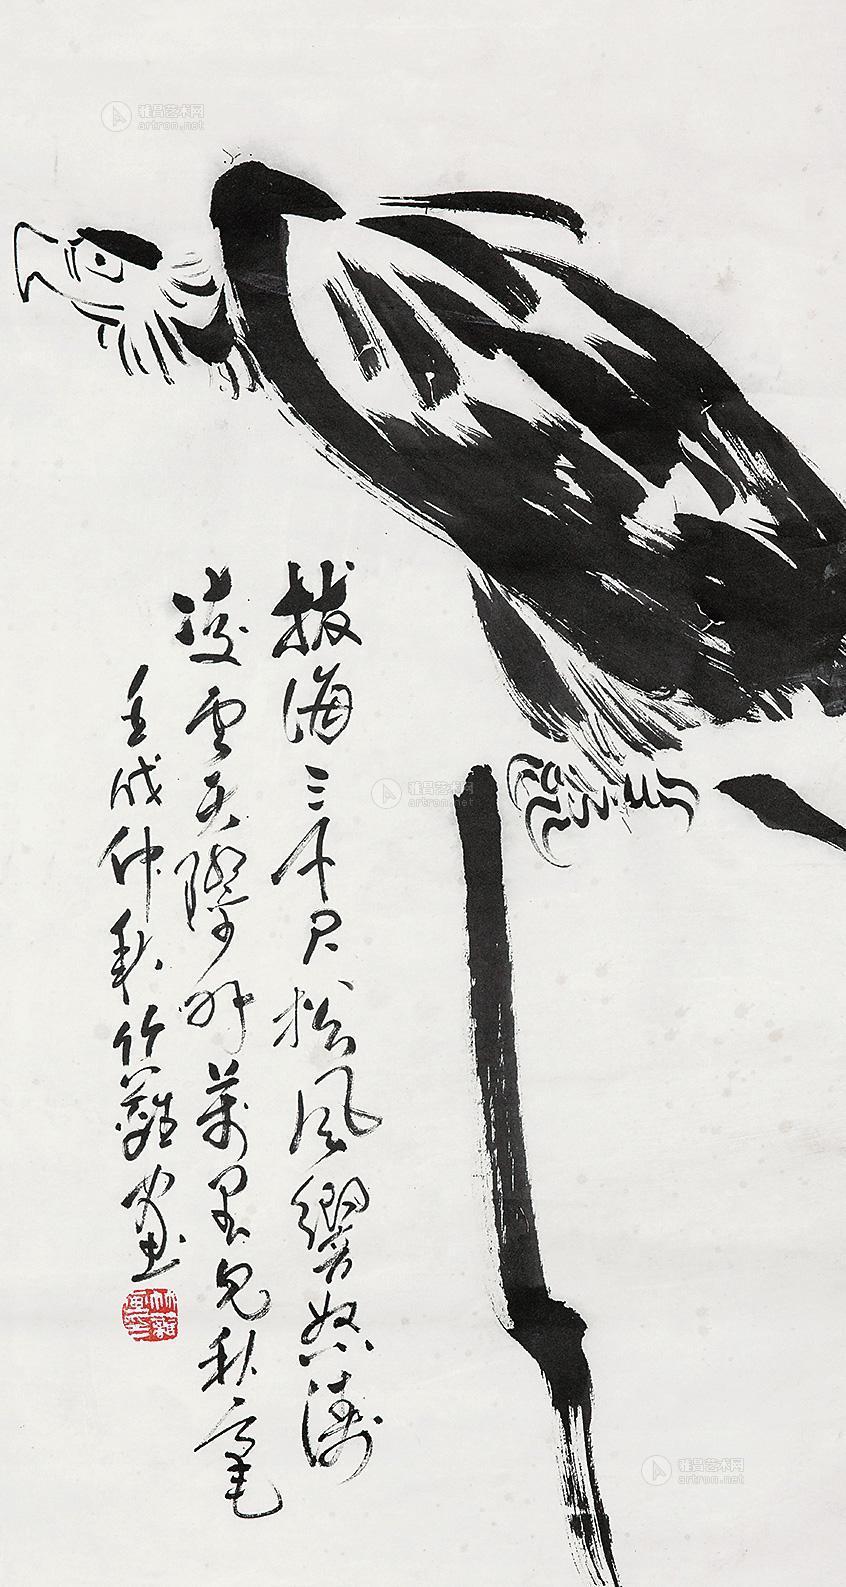 雅昌艺术网
artron.net
拔海三千尺松風響怒濤
凌雲天際萬里見秋毫
壬戌仲秋竹畫
雅昌艺术网
artron.net
雅昌艺术网
artron.net